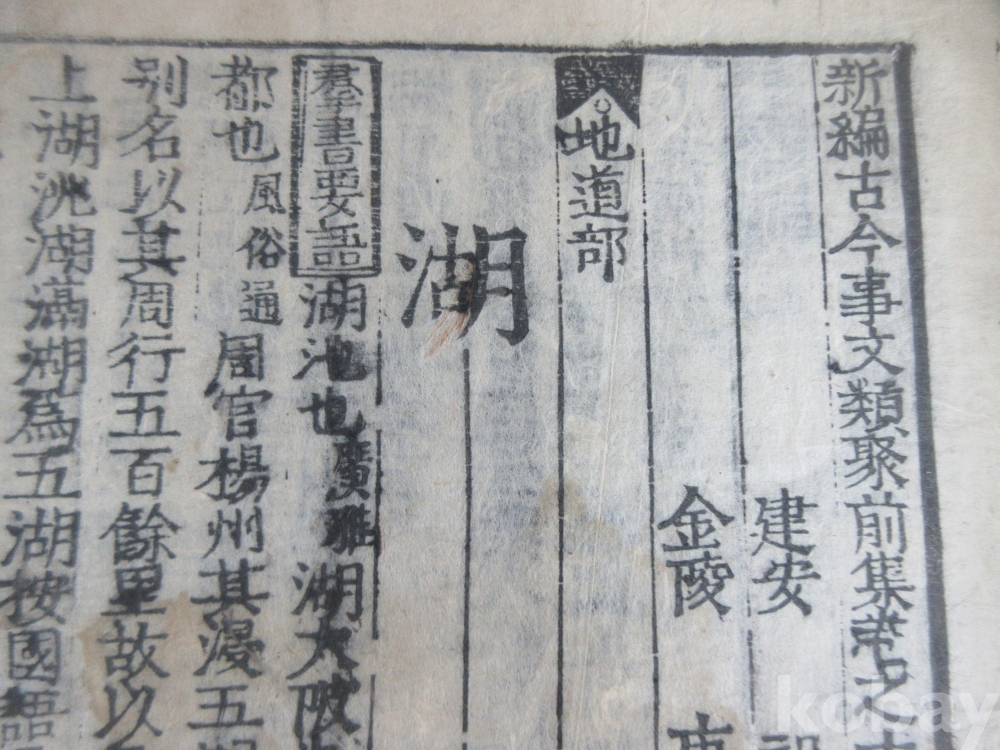 新編古今事文類聚前集卷之
建安
金陵
地道部
湖
羣書要語湖池也廣雅湖大陂
都也風俗通周官楊州其浸五
别名以其周行五百餘里故以
上湖洮湖滆湖爲五湖按國語
kobay